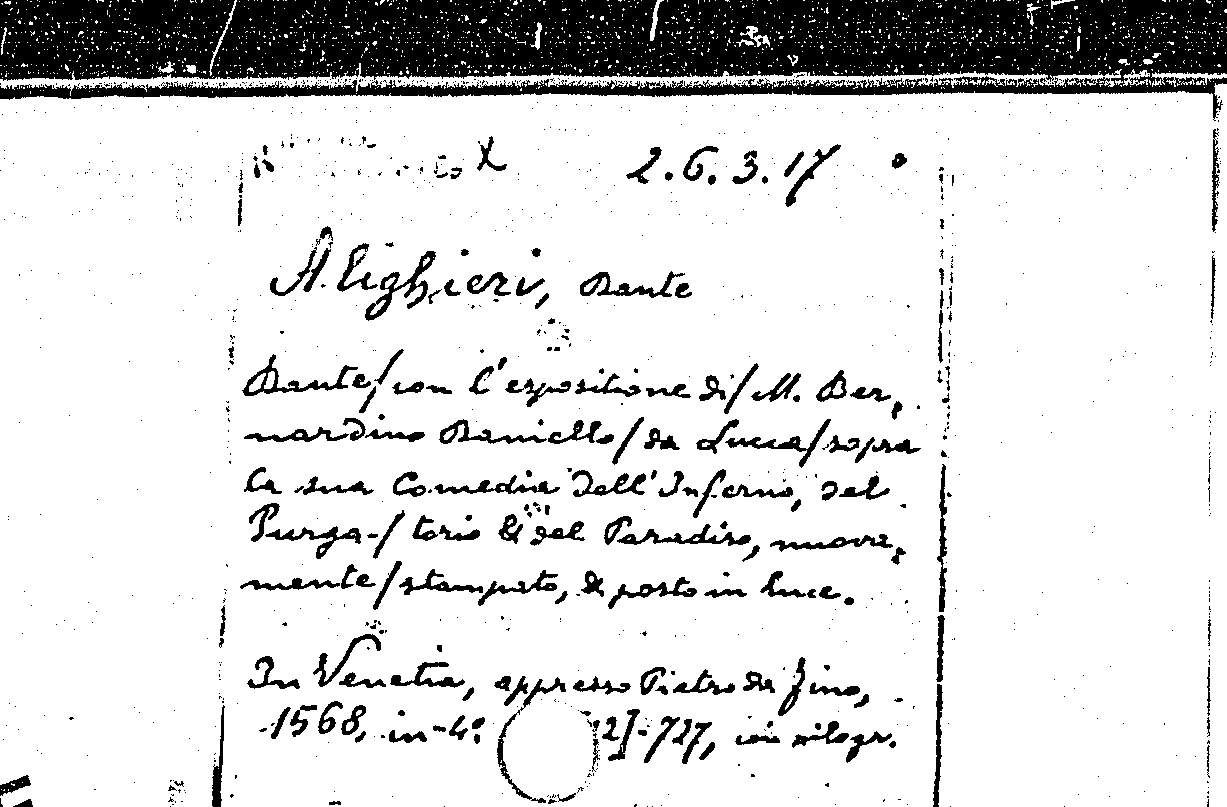 X 2.6.3.17
Alighieri, Dante
Dante/con l'espositione di/M. Ber,
nardino Daniello/da Lucca/sopra
la sua Comedia dell'Inferno, del
Purga-/torio & del Paradiso, nuova,
mente/stampato, & posto in luce.
In Venetia, appresso Pietro da Fino,
1568, in-4º. 12]-727, con xilogr.